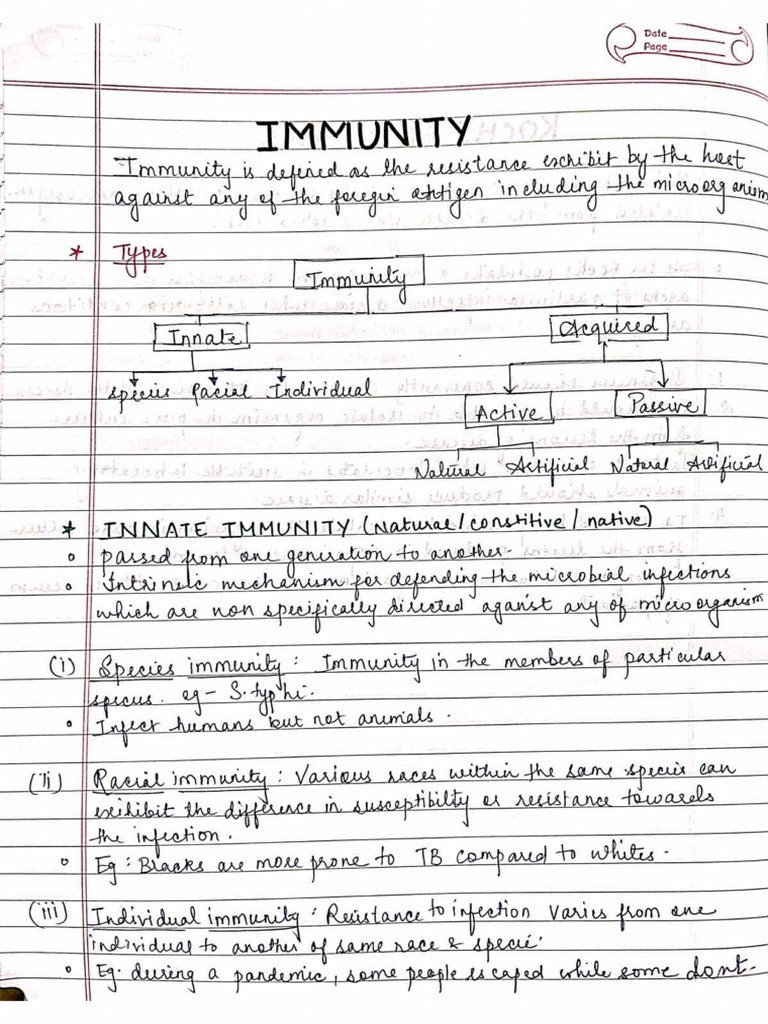 Date
Page
IMMUNITY
Immunity is defined as the resistance exhibit by the host
against any of the foregin antigen including the microorganism
* Types
Immunity
Innate
Acquired
Species Racial Individual
Active
Passive
Natural Artificial Natural Artificial
* INNATE IMMUNITY (Natural/constitive/native)
o passed from one generation to another.
o Intrinsic mechanism for defending the microbial infections
which are non specifically directed against any of microorganism
(i) Species immunity : Immunity in the members of particular
species. eg- S.typhi.
o Infect humans but not animals.
(ii) Racial immunity : Various races within the same species can
exihibit the difference in susceptibilty or resistance towards
the infection.
o Eg : Blacks are more prone to TB compared to whites.
(iii) Individual immunity : Resistance to infection varies from one
individual to another of same race & specie.
o Eg. during a pandemic, some people escaped while some dont.